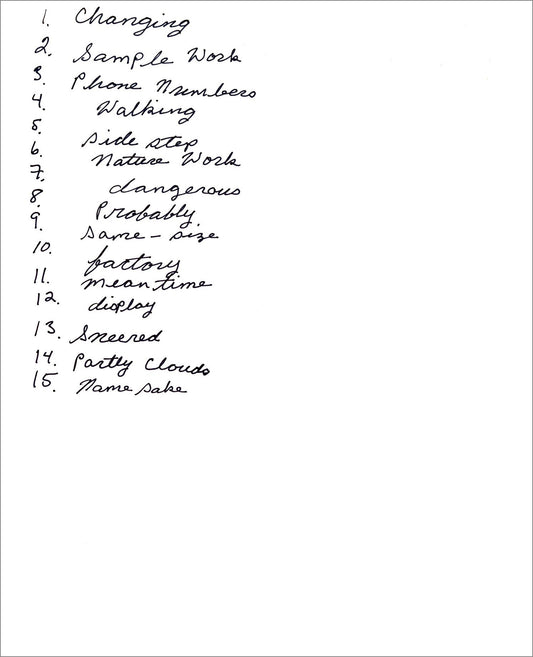 1. Changing
2. Sample Work
3. Phone Numbers
4. Walking
5. Side step
6. Nature Work
7. dangerous
8. Probably.
9. Same - size
10. factory
11. meantime
12. display
13. Sneered
14. Partly Clouds
15. Name sake